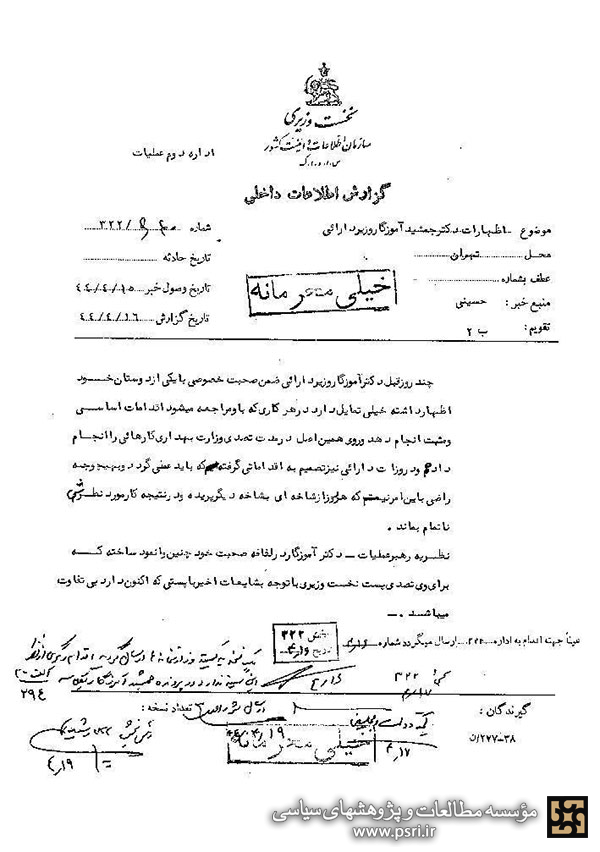 نخست وزیری
سازمان اطلاعات و امنیت کشور
س.ا.و.ا.ک
اداره دوم عملیات
گزارش اطلاعات داخلی
موضوع اظهارات دکتر جمشید آموزگار وزیر دارائی
شماره ۳۲۲/
محل تهران
تاریخ حادثه
عطف بشماره
تاریخ وصول خبر ۴۴/۴/۱۵
منبع خبر: حسینی
تاریخ گزارش ۴۴/۴/۱۶
تقویم: ب ۲
خیلی محرمانه
چند روز قبل دکتر آموزگار وزیر دارائی ضمن صحبت خصوصی با یکی از دوستان خود
اظهار داشته خیلی تمایل دارد در هر کاری که باو مراجعه میشود اقدامات اساسی
ومثبت انجام دهد و روی همین اصل در مدت تصدی وزارت بهداری کارهائی را انجام
دادم و در وزارت دارائی نیز تصمیم به اقداماتی گرفته که باید عملی گردد و بهیچوجه
راضی باین امر نیستم که هر روز از شاخه ای بشاخه دیگر پریده و در نتیجه کار مورد نظرش
ناتمام بماند .
نظریه رهبر عملیات - دکتر آموزگار در لفافه صحبت خود چنین وانمود ساخته که
برای وی تصدی پست نخست وزیری با توجه بشایعات اخیر بایستی که اکنون دارد بی تفاوت
میباشد .
عیناً جهت اقدام به اداره ۳۲۲ ارسال میگردد شماره
۳۲۲
تاریخ ۴/۱۶
۳۲۲
۴/۱۷
۲۹۴
گیرندگان :
تعداد نسخه :
۲۷۷-۳۸/ن
۴/۱۷
۴/۱۹
خیلی محرمانه
۴/۱۹
مؤسسه مطالعات و پژوهشهای سیاسی
www.psri.ir